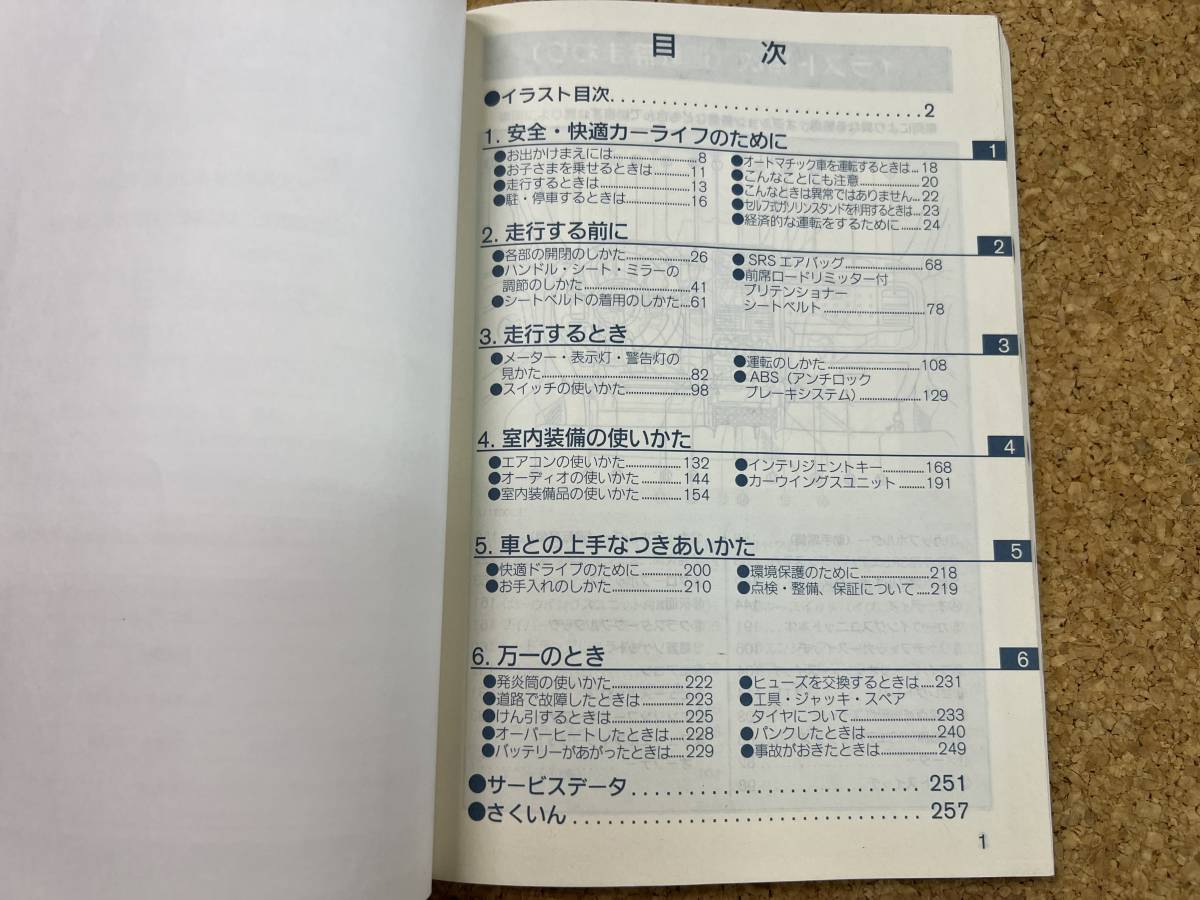 目 次
●イラスト目次..............................2
1. 安全・快適カーライフのために
1
●お出かけまえには..................8
●お子さまを乗せるときは.........11
●走行するときは....................13
●駐・停車するときは...............16
●オートマチック車を運転するときは...18
●こんなことにも注意..............20
●こんなときは異常ではありません...22
●セルフ式ガソリンスタンドを利用するときは...23
●経済的な運転をするために.....24
2. 走行する前に
2
●各部の開閉のしかた...............26
●ハンドル・シート・ミラーの
調節のしかた........................41
●シートベルトの着用のしかた...61
●SRS エアバッグ..................68
●前席ロードリミッター付
プリテンショナー
シートベルト.......................78
3. 走行するとき
3
●メーター・表示灯・警告灯の
見かた................................82
●スイッチの使いかた...............98
●運転のしかた.....................108
●ABS（アンチロック
ブレーキシステム）..............129
4. 室内装備の使いかた
4
●エアコンの使いかた............132
●オーディオの使いかた.........144
●室内装備品の使いかた.........154
●インテリジェントキー.........168
●カーウイングスユニット......191
5. 車との上手なつきあいかた
5
●快適ドライブのために.........200
●お手入れのしかた...............210
●環境保護のために...............218
●点検・整備、保証について...219
6. 万一のとき
6
●発炎筒の使いかた...............222
●道路で故障したときは.........223
●けん引するときは...............225
●オーバーヒートしたときは...228
●バッテリーがあがったときは...229
●ヒューズを交換するときは...231
●工具・ジャッキ・スペア
タイヤについて...................233
●パンクしたときは...............240
●事故がおきたときは............249
●サービスデータ..............................251
●さくいん....................................257
1